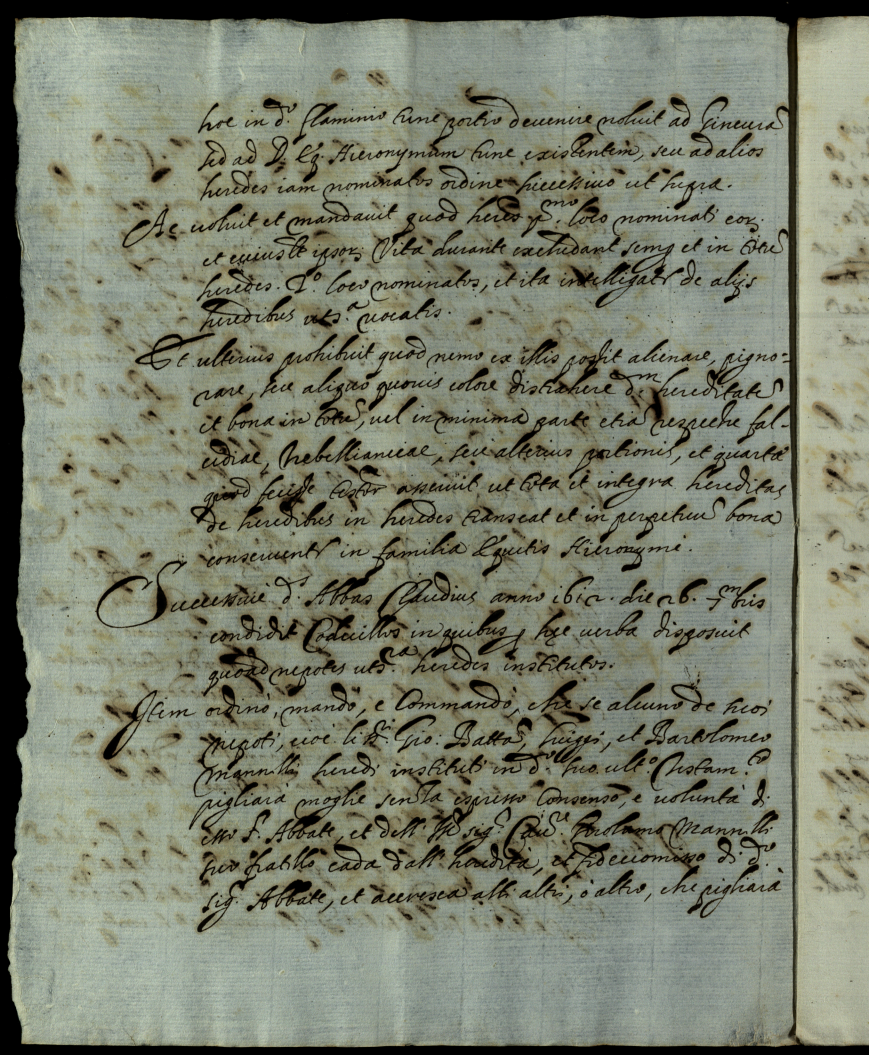 hoc in d.º Flaminio tunc portio devenire noluit ad Gineura
sed ad D. Eq. Hieronymum tunc existentem, seu ad alios
heredes iam nominatos ordine successivo ut supra.
Ac voluit et mandavit quod heres p.mo loco nominati eor.
et cuiuslt ipsor. Vita durante excludant semp et in totu
heredes 2.º loco nominatos, et ita intelligatr de alijs
heredibus uts.ª vocatis.
Et ulterius prohibuit quod nemo ex illis possit alienare, pigno=
rare, seu aliquo quovis colore distrahere d.m hereditate
et bona in totu, vel in minima parte etia respectu fal-
cidiae, Trebellianicae, seu alterius portionis, et quartae
quod fecisse testor asseruit ut tota et integra hereditas
de heredibus in heredes transeat et in perpetuu bona
conserventr in familia Equitis Hieronymi.
Successive d.s Abbas Claudius anno 1612. die 26. 7mbris
condidit Codicillos in quibus p hęc verba disposuit
quoad nepotes uts.ra heredes institutos.
Item ordinò, mandò, e Commandò, che se alcuno de suoi
nepoti, cioè li Gio: Batta, Luiggi, et Bartolomeo
Mannilli heredi instituti in d.º suo ult.º Testam.to
pigliarà moglie senza espresso Consenso, e voluntà di
esso S. Abbate, et dell' sig.r Cau.re Girolamo Mannilli
suo fratello cada dall' heredità, et fideicomisso di d.º
sig.r Abbate, et accresca alli altri, ò altro, che pigliarà